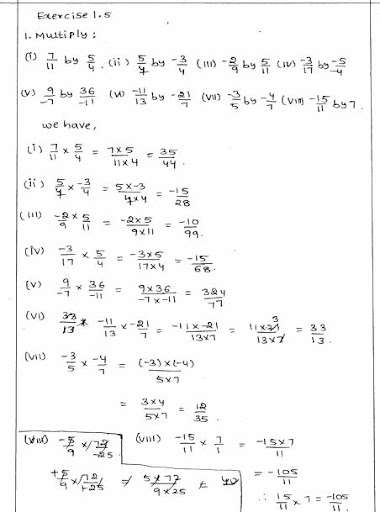 Exercise 1.5
1. Multiply :
(i) 7/11 by 5/4 . (ii) 5/7 by -3/4 (iii) -2/9 by 5/11 (iv) -3/17 by -5/-4
(v) 9/-7 by 36/-11 (vi) -11/13 by -21/7 (vii) -3/5 by -4/7 (viii) -15/11 by 7.
we have,
(i) 7/11 × 5/4 = 7×5/11×4 = 35/44.
(ii) 5/7 × -3/4 = 5×-3/7×4 = -15/28
(iii) -2/9 × 5/11 = -2×5/9×11 = -10/99.
(iv) -3/17 × 5/4 = -3×5/17×4 = -15/68.
(v) 9/-7 × 36/-11 = 9×36/-7×-11 = 324/77
(vi) 33/13 -11/13 × -21/7 = -11×-21/13×7 = 11×21 3/13×7 = 33/13.
(vii) -3/5 × -4/7 = (-3)×(-4)/5×7
= 3×4/5×7 = 12/35.
(viii) -5/9 × 72/-25 (viii) -15/11 × 7/1 = -15×7/11
+5/9 × 72/+25 = 5×72/9×25 = = -105/11
∴ 15/11 × 7 = -105/11.